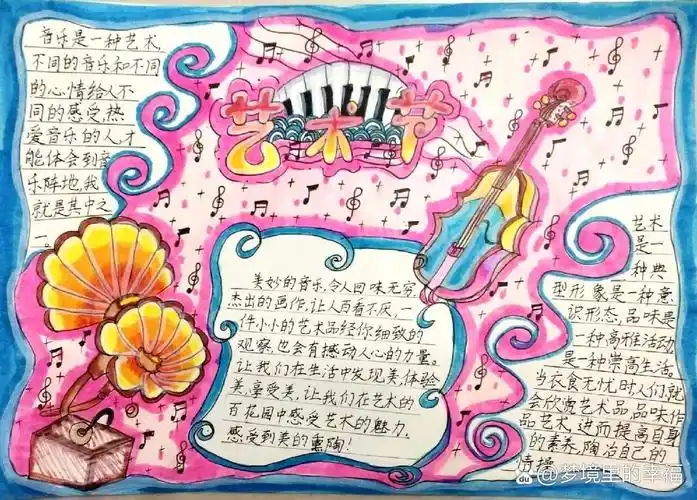 音乐是一种艺术,
不同的音乐和不同
的心情给人不
同的感受,热
爱音乐的人才
能体会到音
乐阵地,我
就是其中之
一。
艺术节
美妙的音乐,令人回味无穷,
杰出的画作,让人百看不厌,一
件小小的艺术品经你细致的
观察,也会有撼动人心的力量。
让我们在生活中发现美,体验
美,享受美,让我们在艺术的
百花园中感受艺术的魅力,
感受到美的熏陶!
艺术
是一
种典
型形象是一种意
识形态,品味是
一种高雅活动
是一种崇高生活。
当衣食无忧时人们就
会欣赏艺术品,品味作
品艺术,进而提高自身
的素养,陶冶自己的
情操
du @梦境里的幸福